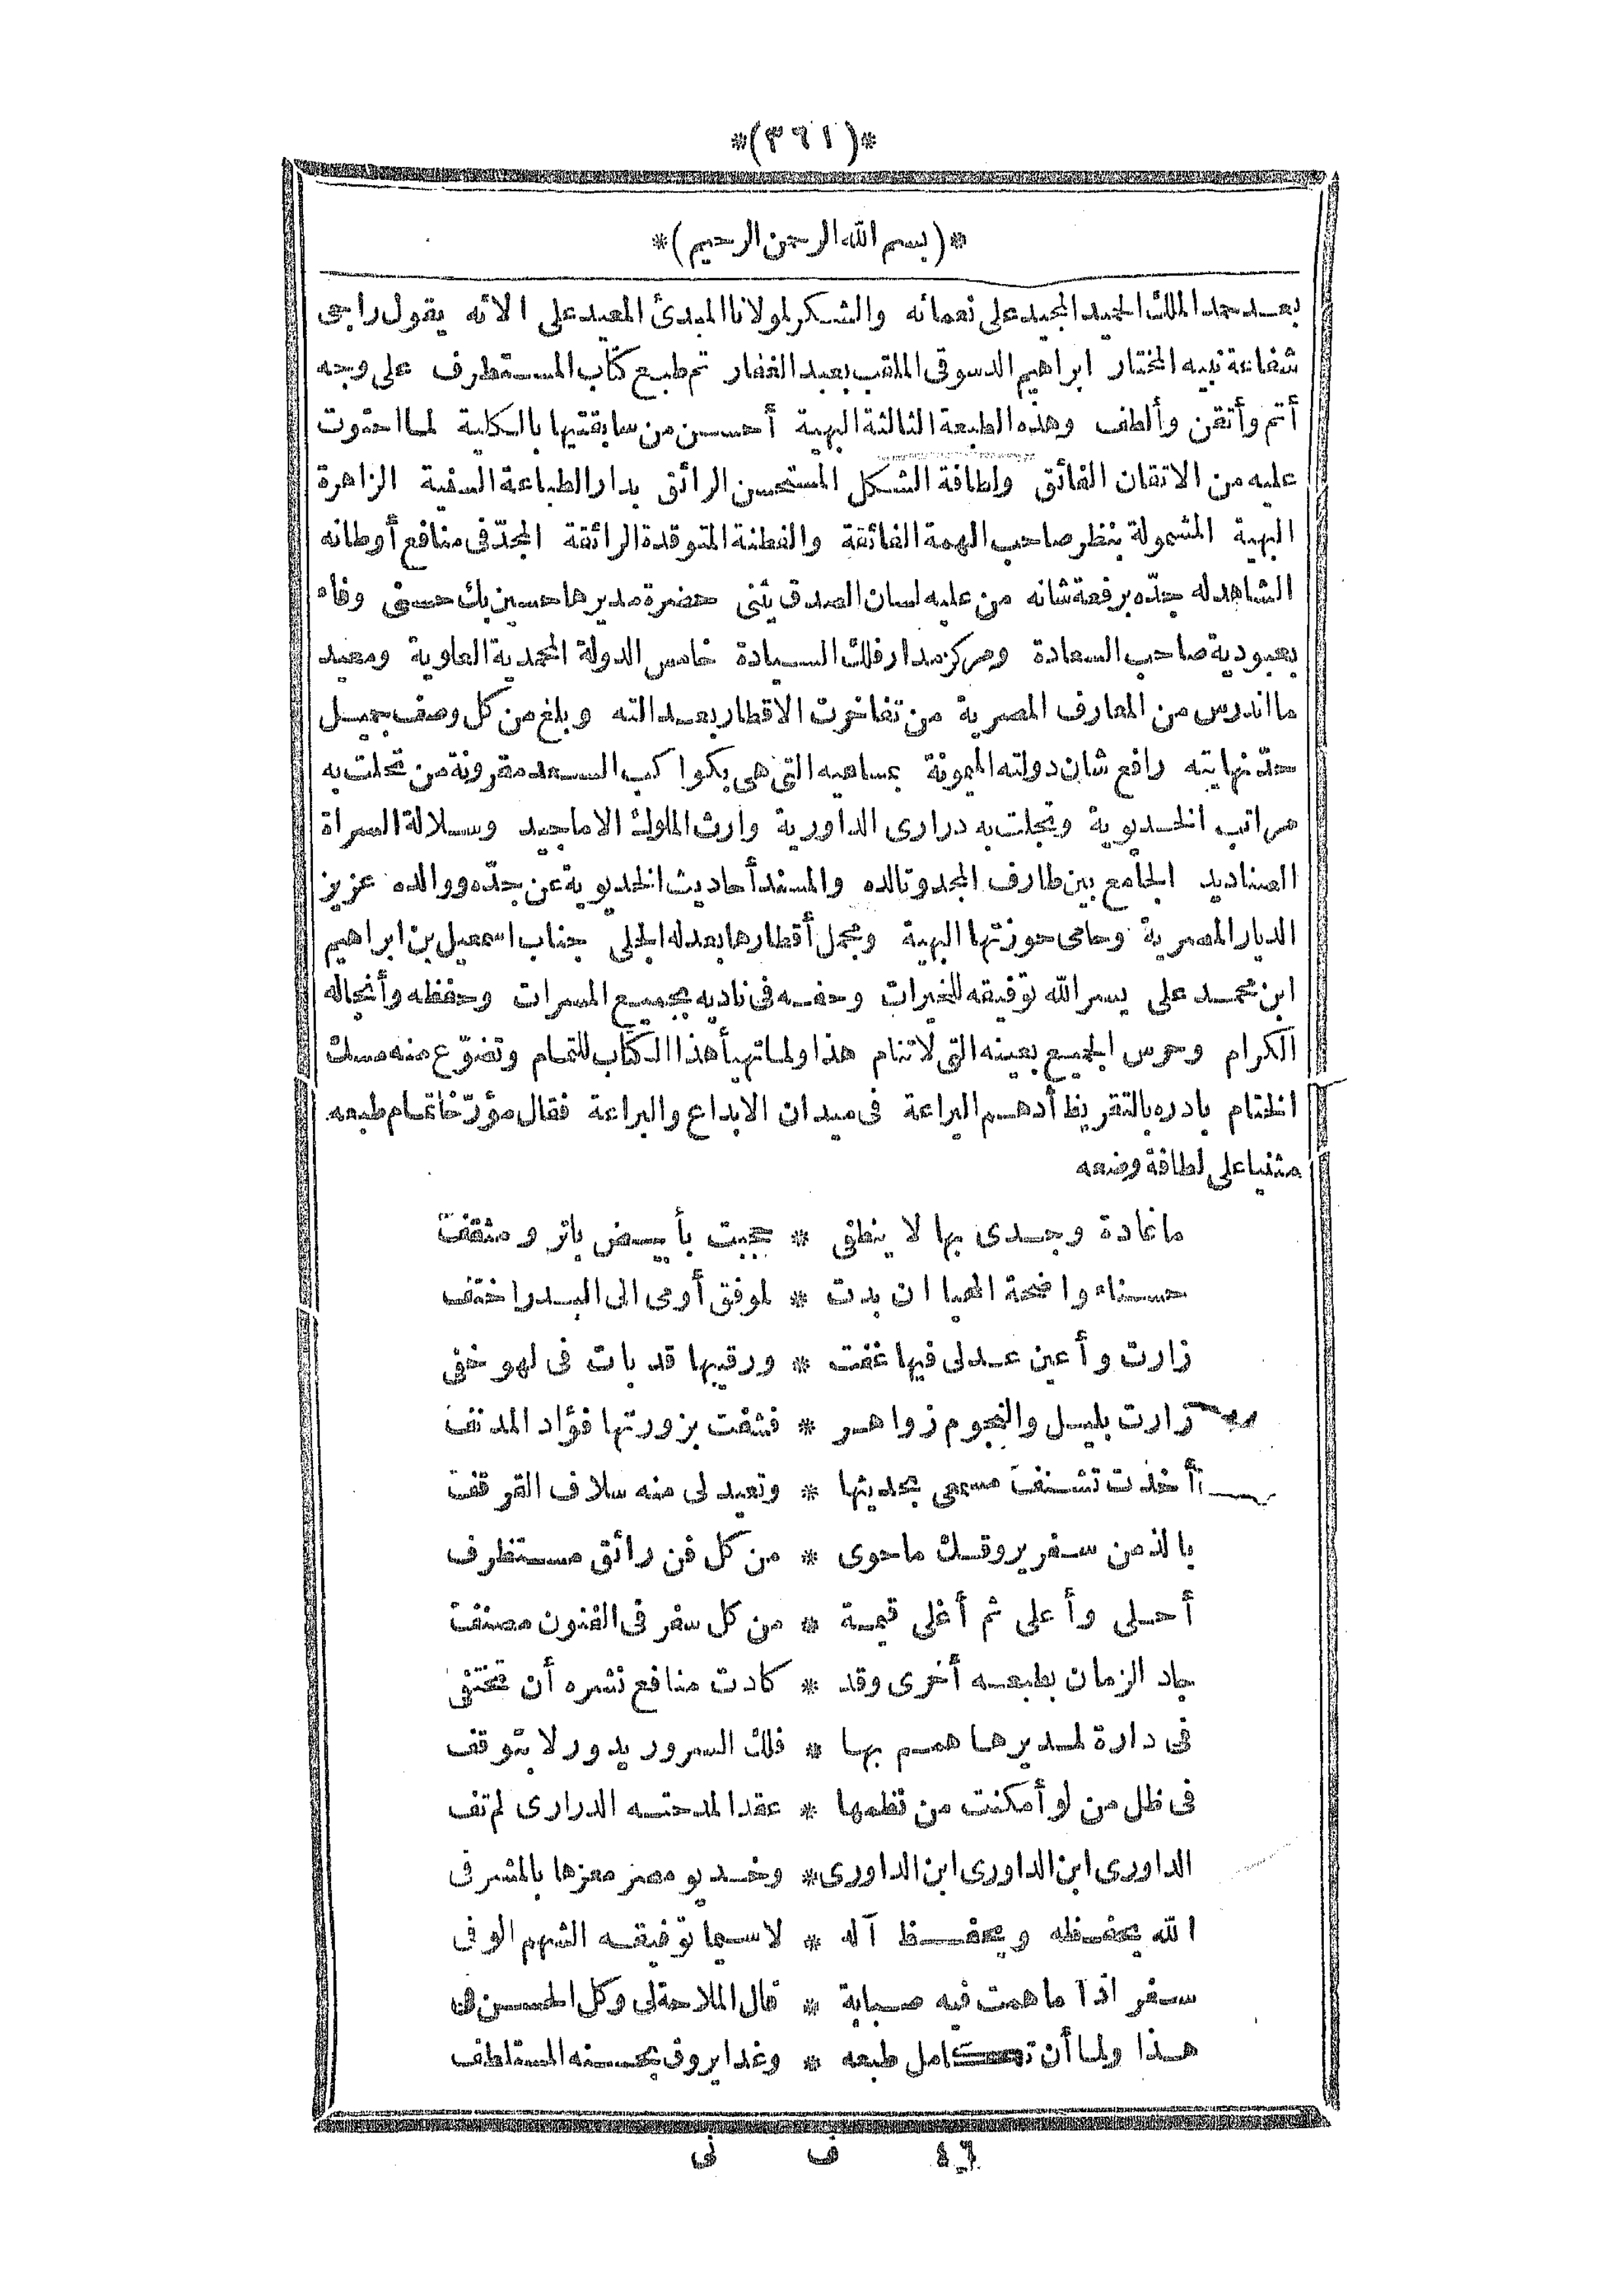 *(٣٦١)*
*(بسم الله الرحمن الرحيم)*
بعد حمد الملك الحميد المجيد على نعمائه والشكر لمولانا المبدئ المعيد على الائه يقول راجى
شفاعة نبيه المختار ابراهيم الدسوقى الملقب بعبد الغفار تم طبع كتاب المستظرف على وجه
أتم وأتقن وألطف وهذه الطبعة الثالثة البهية أحسن من سابقتيها بالكلية لما احتوت
عليه من الاتقان الفائق ولطافة الشكل المستحسن الرائق بدار الطباعة السنية الزاهرة
البهية المشمولة بنظر صاحب الهمة الفائقة والفطنة المتوقدة الرائقة المجدّ فى منافع أوطانه
الشاهد له جدّه برفعة شانه من عليه لسان الصدق يثنى حضرة مديرها حسين بك حسنى وفاه
بعبودية صاحب السعادة ومركز مدار فلك السيادة خامس الدولة المحمدية العلوية ومعيد
ما اندرس من المعارف المصرية من تفاخرت الاقطار بعدالته وبلغ من كل وصف جميل
حدّ نهايته رافع شان دولته الميمونة بمساعيه التى هى بكواكب السعد مقرونة من تحلت به
مراتب الخديوية وتجلت به درارى الداورية وارث الملوك الاماجيد وسلالة السراة
الصناديد الجامع بين طارف المجد وتالده والمسند أحاديث الخديوية عن جدّه ووالده عزيز
الديار المصرية وحامى حوزتها البهية ومجمل أقطارها بعدله الجلى جناب اسمعيل بن ابراهيم
ابن محمد على يسر الله توفيقه للخيرات وحفه فى ناديه بجميع المسرات وحفظه وأنجاله
الكرام وحرس الجميع بعينه التى لا تنام هذا ولما تهيأ هذا الكتاب للتمام وتضوّع منه مسك
الختام بادره بالتقريظ أدهم اليراعة فى ميدان الابداع والبراعة فقال مؤرّخا تمام طبعه
مثنيا على لطافة وضعه
ما غادة وجدى بها لا ينطفى * حجبت بأبيض باتر ومثقف
حسناء واضحة المحيا ان بدت * لموفق أومى الى البدر اختف
زارت وأعين عدلى فيها غفت * ورقيبها قد بات فى لهو خفى
زارت بليل والنجوم زواهر * فشفت بزورتها فؤاد المدنف
أخذت تشنف مسمعى بحديثها * وتعيد لى منه سلاف القرقف
بالذ من سفر يروقك ما حوى * من كل فن رائق مستظرف
أحلى وأعلى ثم أغلى قيمة * من كل سفر فى الفنون مصنف
جاد الزمان بطبعه أخرى وقد * كادت منافع نشره أن تختفى
فى دارة لمديرها همم بها * فلك السرور يدور لا بتوقف
فى ظل من لو أمكنت من نظمها * عقدا لمدحته الدرارى لم تف
الداورى ابن الداورى ابن الداورى * وخديو مصر معزها بالمشرفى
الله يحفظه ويحفظ آله * لا سيما توفيقه الشهم الوفى
سفر اذا ما همت فيه صبابة * قال الملاحة لى وكل الحسن فى
هذا ولما أن تكامل طبعه * وغدا يروق بحسنه المتلطف
٤٦ ف نى